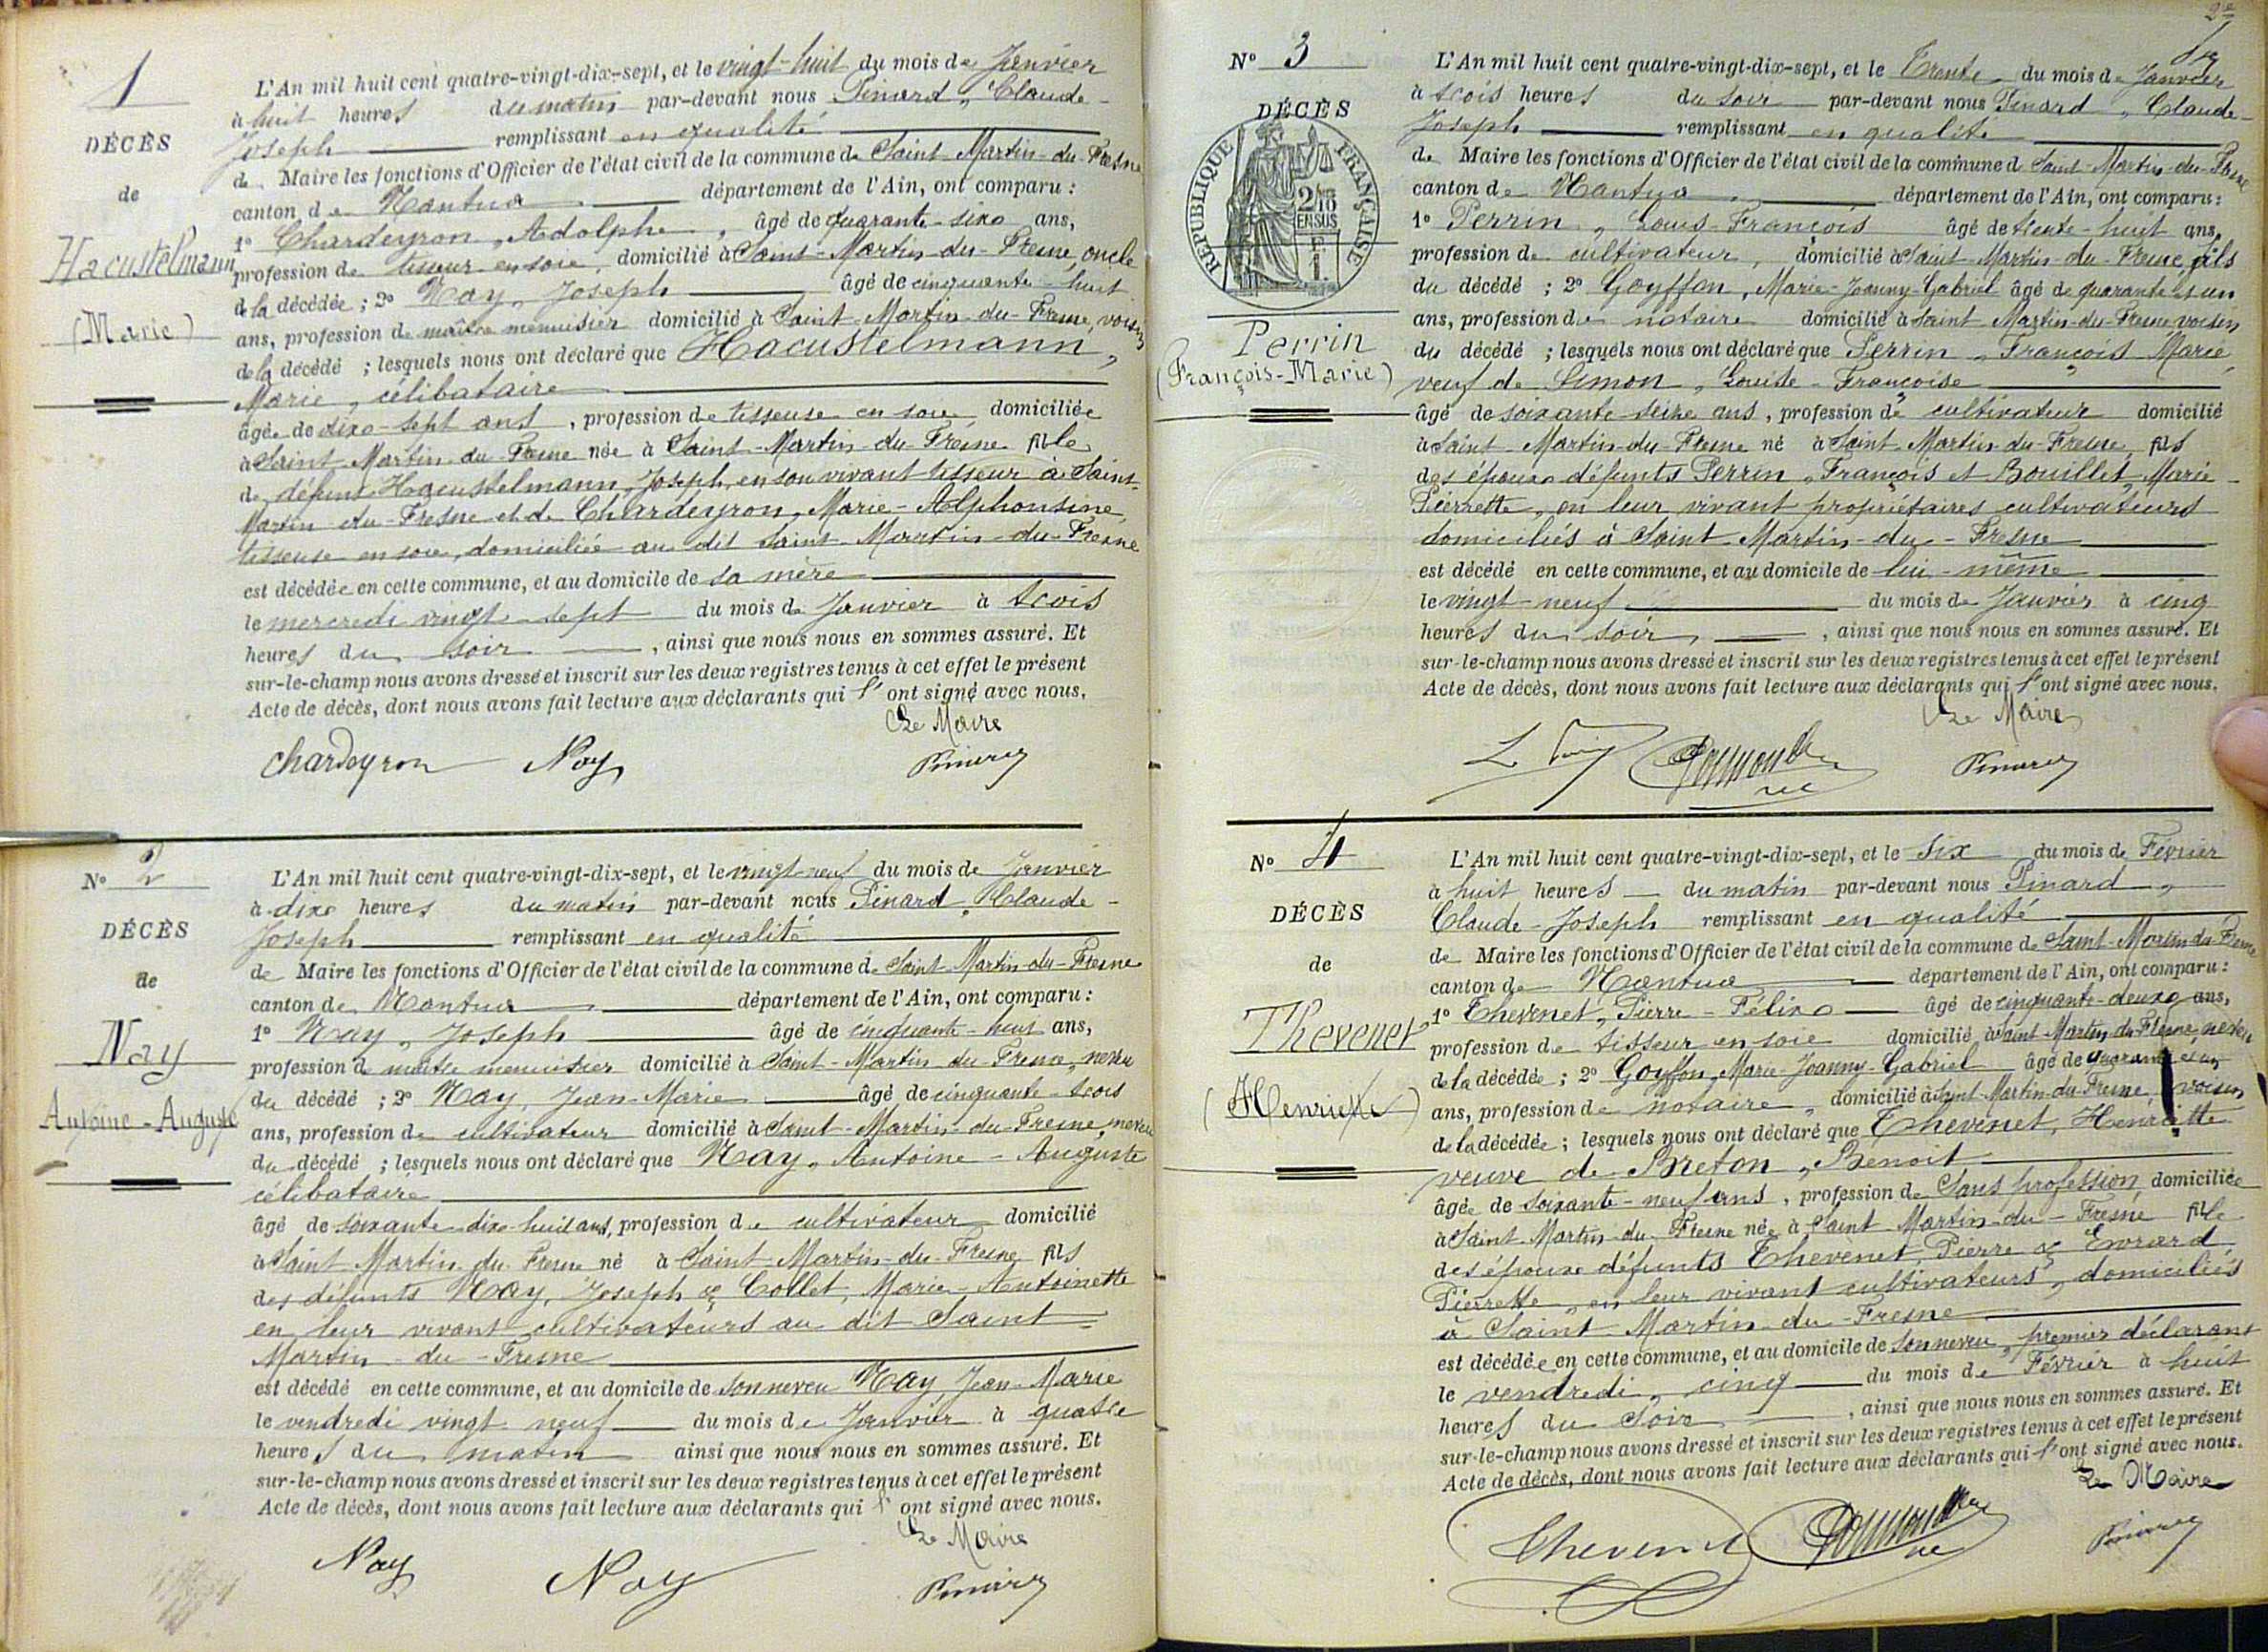 1
DÉCÈS
de
Hacustelmann
(Marie)
L'An mil huit cent quatre-vingt-dix-sept, et le vingt-huit du mois de Janvier
à huit heures du matin par-devant nous Pinard, Claude-
Joseph remplissant en qualité
de Maire les fonctions d'Officier de l'état civil de la commune de Saint-Martin-du-Fresne
canton de Nantua département de l'Ain, ont comparu :
1° Chardeyron, Adolphe, âgé de quarante-six ans,
profession de tisseur en soie, domicilié à Saint-Martin-du-Fresne, oncle
de la décédée ; 2° Nay, Joseph âgé de cinquante-huit
ans, profession de maître menuisier domicilié à Saint-Martin-du-Fresne, voisin
de la décédé ; lesquels nous ont déclaré que Hacustelmann,
Marie, célibataire
âgée de dix-sept ans, profession de tisseuse en soie domiciliée
à Saint-Martin-du-Fresne née à Saint-Martin-du-Fresne fille
de défunt Hacustelmann, Joseph, en son vivant tisseur à Saint-
Martin-du-Fresne et de Chardeyron, Marie-Alphonsine,
tisseuse en soie, domiciliée au dit Saint-Martin-du-Fresne
est décédée en cette commune, et au domicile de sa mère
le mercredi vingt-sept du mois de Janvier à trois
heures du soir, ainsi que nous nous en sommes assuré. Et
sur-le-champ nous avons dressé et inscrit sur les deux registres tenus à cet effet le présent
Acte de décès, dont nous avons fait lecture aux déclarants qui l'ont signé avec nous.
Le Maire
Chardeyron Nay Pinard
N° 2
DÉCÈS
de
Nay
Antoine-Auguste
L'An mil huit cent quatre-vingt-dix-sept, et le vingt-neuf du mois de Janvier
à dix heures du matin par-devant nous Pinard, Claude-
Joseph remplissant en qualité
de Maire les fonctions d'Officier de l'état civil de la commune de Saint-Martin-du-Fresne
canton de Nantua département de l'Ain, ont comparu :
1° Nay, Joseph âgé de cinquante-huit ans,
profession de maître menuisier domicilié à Saint-Martin-du-Fresne, neveu
du décédé ; 2° Nay, Jean-Marie âgé de cinquante-trois
ans, profession de cultivateur domicilié à Saint-Martin-du-Fresne, neveu
du décédé ; lesquels nous ont déclaré que Nay, Antoine-Auguste
célibataire
âgé de soixante-dix-huit ans, profession de cultivateur domicilié
à Saint-Martin-du-Fresne né à Saint-Martin-du-Fresne fils
des défunts Nay, Joseph & Collet, Marie-Antoinette
en leur vivant cultivateurs au dit Saint-
Martin-du-Fresne
est décédé en cette commune, et au domicile de son neveu Nay, Jean-Marie
le vendredi vingt-neuf du mois de Janvier à quatre
heures du matin ainsi que nous nous en sommes assuré. Et
sur-le-champ nous avons dressé et inscrit sur les deux registres tenus à cet effet le présent
Acte de décès, dont nous avons fait lecture aux déclarants qui l'ont signé avec nous.
Le Maire
Nay Nay Pinard
N° 3
DÉCÈS
RÉPUBLIQUE FRANÇAISE
2/10 EN SUS
1 F.
Perrin
(François-Marie)
L'An mil huit cent quatre-vingt-dix-sept, et le Trente du mois de Janvier
à trois heures du soir par-devant nous Pinard, Claude-
Joseph remplissant en qualité
de Maire les fonctions d'Officier de l'état civil de la commune de Saint-Martin-du-Fresne
canton de Nantua département de l'Ain, ont comparu :
1° Perrin, Louis-François âgé de trente-huit ans,
profession de cultivateur, domicilié à Saint-Martin-du-Fresne, fils
du décédé ; 2° Goyffon, Marie-Joanny-Gabriel âgé de quarante et un
ans, profession de notaire domicilié à Saint-Martin-du-Fresne voisin
du décédé ; lesquels nous ont déclaré que Perrin, François Marie,
veuf de Simon, Louise-Françoise
âgé de soixante-seize ans, profession de cultivateur domicilié
à Saint-Martin-du-Fresne né à Saint-Martin-du-Fresne, fils
des époux défunts Perrin, François et Bouillet, Marie-
Pierrette, en leur vivant propriétaires cultivateurs
domiciliés à Saint-Martin-du-Fresne
est décédé en cette commune, et au domicile de lui-même
le vingt-neuf du mois de Janvier à cinq
heures du soir, ainsi que nous nous en sommes assuré. Et
sur-le-champ nous avons dressé et inscrit sur les deux registres tenus à cet effet le présent
Acte de décès, dont nous avons fait lecture aux déclarants qui l'ont signé avec nous.
Le Maire
Pinard
N° 4
DÉCÈS
de
Thevenet
(Henriette)
L'An mil huit cent quatre-vingt-dix-sept, et le six du mois de Février
à huit heures du matin par-devant nous Pinard,
Claude-Joseph remplissant en qualité
de Maire les fonctions d'Officier de l'état civil de la commune de Saint-Martin-du-Fresne
canton de Nantua département de l'Ain, ont comparu :
1° Thevenet, Pierre-Félix âgé de cinquante-deux ans,
profession de tisseur en soie domicilié à Saint-Martin-du-Fresne, neveu
de la décédée ; 2° Goyffon, Marie-Joanny-Gabriel âgé de quarante et un
ans, profession de notaire, domicilié à Saint-Martin-du-Fresne, voisin
de la décédée ; lesquels nous ont déclaré que Thevenet, Henriette
veuve de Breton, Benoit
âgée de soixante-neuf ans, profession de Sans profession, domiciliée
à Saint-Martin-du-Fresne née à Saint-Martin-du-Fresne fille
des époux défunts Thevenet, Pierre & Evrard
Pierrette, en leur vivant cultivateurs, domiciliés
à Saint-Martin-du-Fresne
est décédée en cette commune, et au domicile de son neveu, premier déclarant
le vendredi, cinq du mois de Février à huit
heures du Soir, ainsi que nous nous en sommes assuré. Et
sur-le-champ nous avons dressé et inscrit sur les deux registres tenus à cet effet le présent
Acte de décès, dont nous avons fait lecture aux déclarants qui l'ont signé avec nous.
Le Maire
Thevenet Pinard